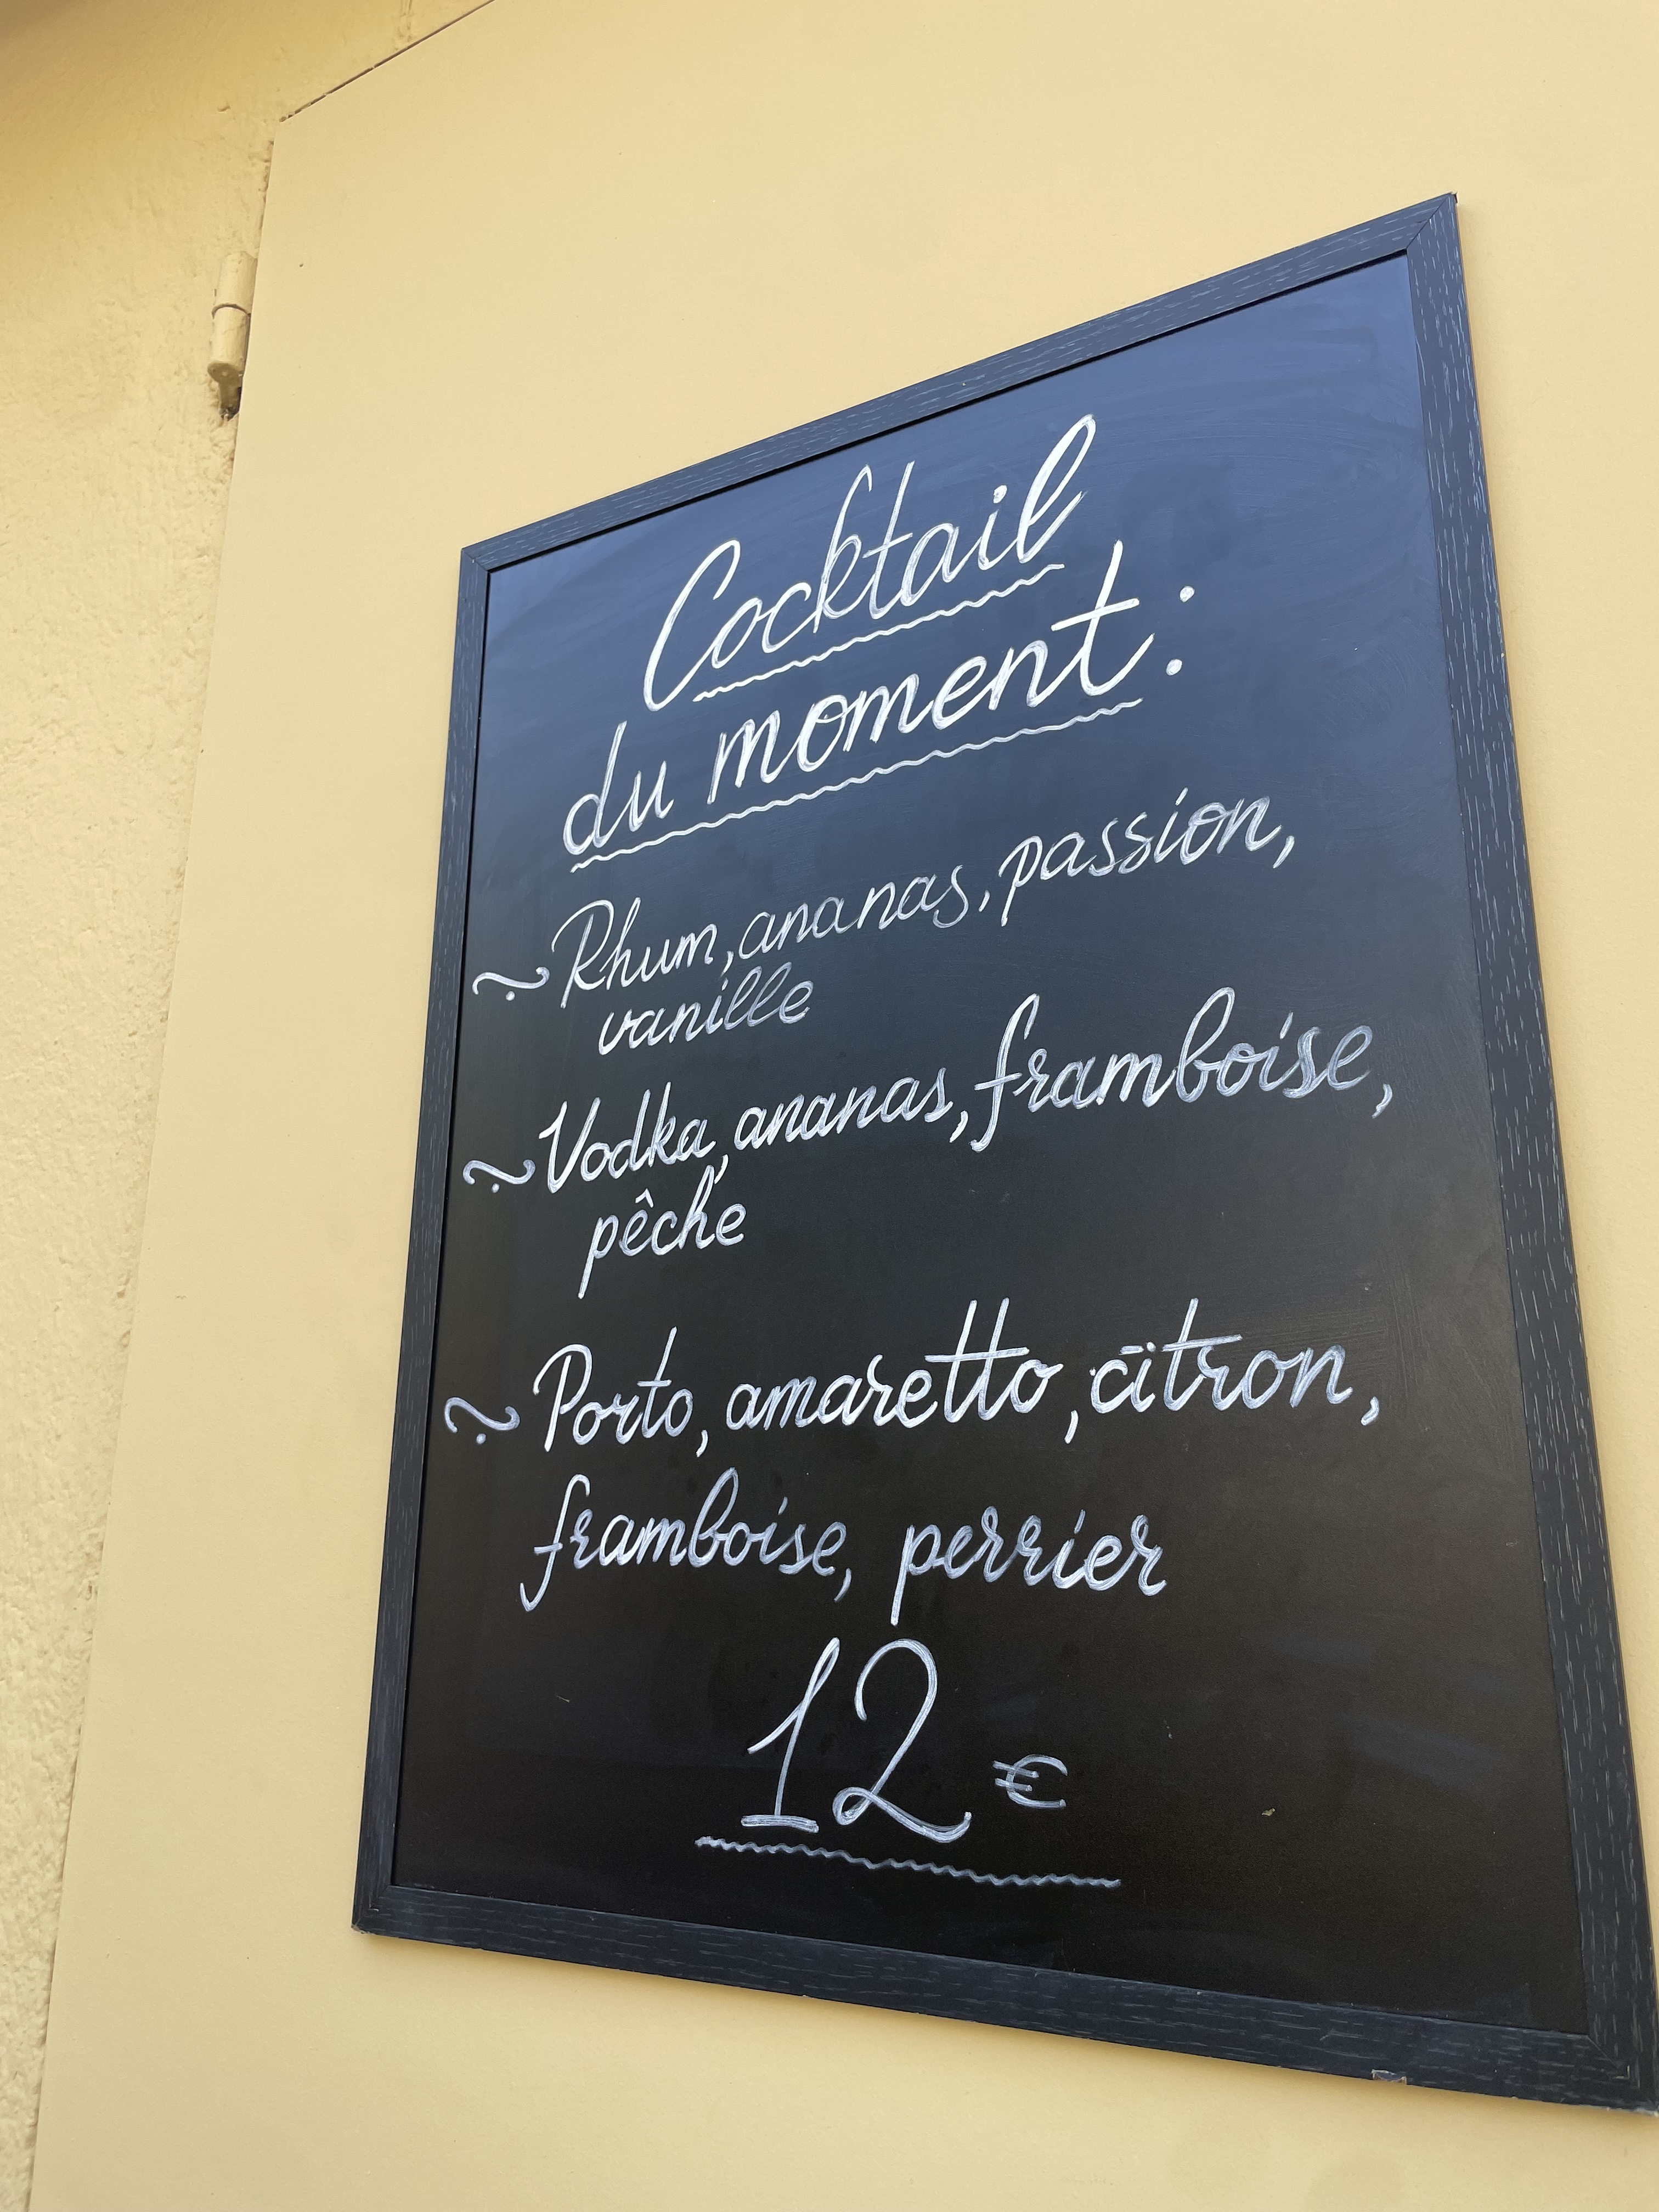 Cocktail
du moment :
~ Rhum, ananas, passion,
vanille
~ Vodka, ananas, framboise,
pêche
~ Porto, amaretto, citron,
framboise, perrier
12 €